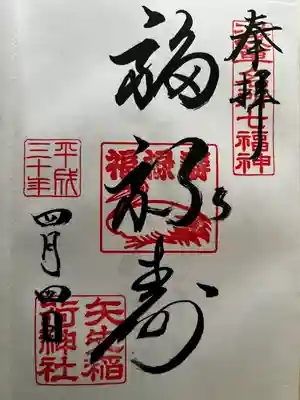 奉拝
七福神
福禄寿
福禄壽
平成
三十年
四月四日
矢先稲
荷神社